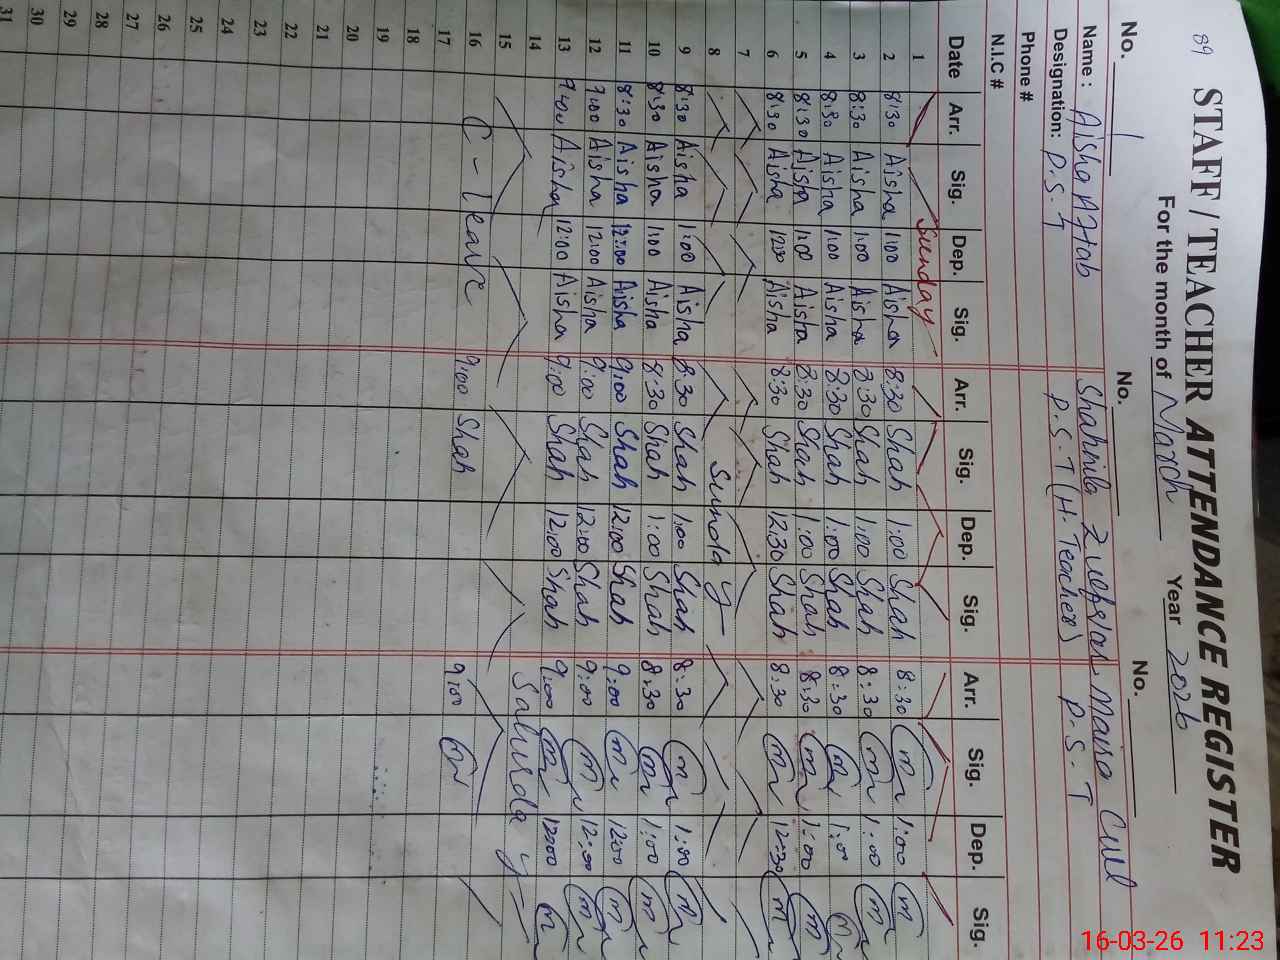 89
STAFF / TEACHER ATTENDANCE REGISTER
For the month of March Year 2026
No. 1 No. No.
Name : Aisha Aftab Shahnila Zulfqar Maira Gull
Designation: P.S.T P.S.T (H.Teacher) P.S.T
Phone #
N.I.C #
Date Arr. Sig. Dep. Sig. Arr. Sig. Dep. Sig. Arr. Sig. Dep. Sig.
1 Sunday
2 8:30 Aisha 1:00 Aisha 8:30 Shah 1:00 Shah 8:30 m 1:00 m
3 8:30 Aisha 1:00 Aisha 8:30 Shah 1:00 Shah 8:30 m 1:00 m
4 8:30 Aisha 1:00 Aisha 8:30 Shah 1:00 Shah 8:30 m 1:00 m
5 8:30 Aisha 1:00 Aisha 8:30 Shah 1:00 Shah 8:30 m 1:00 m
6 8:30 Aisha 12:30 Aisha 8:30 Shah 12:30 Shah 8:30 m 12:30 m
7
8 Sunday
9 8:30 Aisha 1:00 Aisha 8:30 Shah 1:00 Shah 8:30 m 1:00 m
10 8:30 Aisha 1:00 Aisha 8:30 Shah 1:00 Shah 8:30 m 1:00 m
11 8:30 Aisha 12:00 Aisha 9:00 Shah 12:00 Shah 9:00 m 12:00 m
12 9:00 Aisha 12:00 Aisha 9:00 Shah 12:00 Shah 9:00 m 12:00 m
13 9:00 Aisha 12:00 Aisha 9:00 Shah 12:00 Shah 9:00 m 12:00 m
14 Saturday
15
16 C-leave 9:00 Shah 9:00 m
17
18
19
20
21
22
23
24
25
26
27
28
29
30
31
16-03-26 11:23